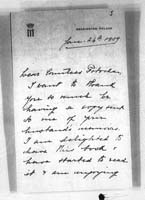 KENSINGTON PALACE
June 24th 1909
Dear Countess Potocka,
I want to thank
you so much for
having a copy sent
to me of your
husband's memoirs.
I am delighted to
have this book &
have started to read
it & am enjoying